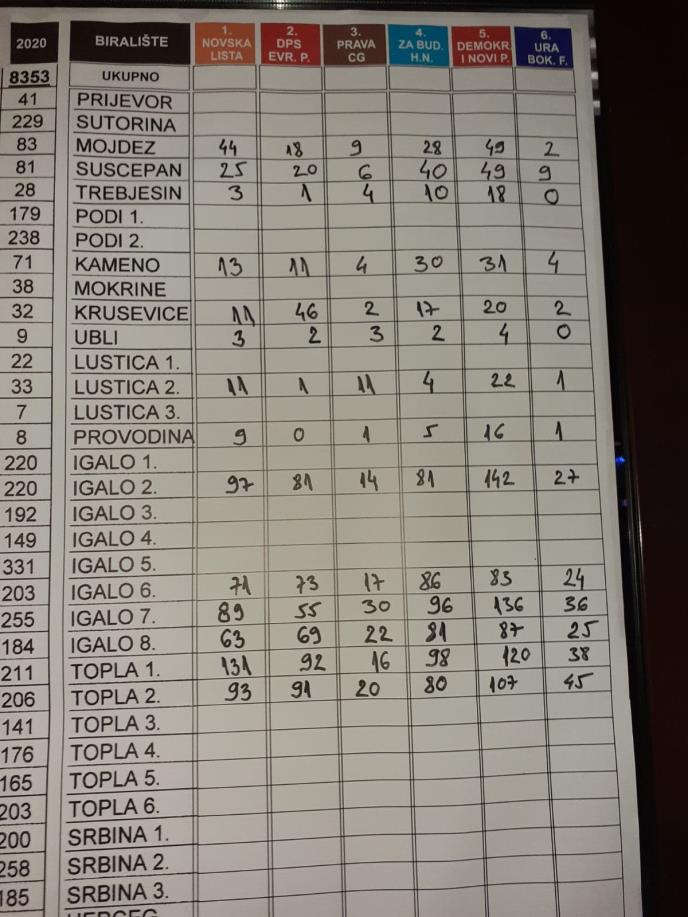 2020 BIRALIŠTE 1. NOVSKA LISTA 2. DPS EVR. P. 3. PRAVA CG 4. ZA BUD. H.N. 5. DEMOKR. I NOVI P. 6. URA BOK. F.
8353 UKUPNO
41 PRIJEVOR
229 SUTORINA
83 MOJDEZ 44 18 9 28 49 2
81 SUSCEPAN 25 20 6 40 49 9
28 TREBJESIN 3 1 4 10 18 0
179 PODI 1.
238 PODI 2.
71 KAMENO 13 11 4 30 31 4
38 MOKRINE
32 KRUSEVICE 11 46 2 17 20 2
9 UBLI 3 2 3 2 4 0
22 LUSTICA 1.
33 LUSTICA 2. 11 1 11 4 22 1
7 LUSTICA 3.
8 PROVODINA 9 0 1 5 16 1
220 IGALO 1.
220 IGALO 2. 97 81 14 81 142 27
192 IGALO 3.
149 IGALO 4.
331 IGALO 5.
203 IGALO 6. 71 73 17 86 83 24
255 IGALO 7. 89 55 30 96 136 36
184 IGALO 8. 63 69 22 81 87 25
211 TOPLA 1. 131 92 16 98 120 38
206 TOPLA 2. 93 91 20 80 107 45
141 TOPLA 3.
176 TOPLA 4.
165 TOPLA 5.
203 TOPLA 6.
200 SRBINA 1.
258 SRBINA 2.
185 SRBINA 3.
HERCEG